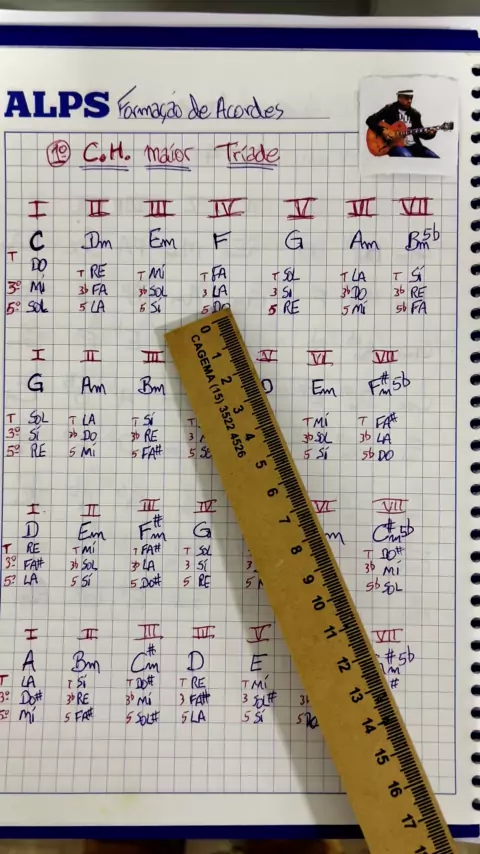 ALPS Formação de Acordes
1º C.H. maior Tríade
I II III IV V VI VII
C Dm Em F G Am Bm5b
T DO T RE T Mí T FA T SOL T LA T Sí
3º Mí 3b FA 3b SOL 3 LA 3 Sí 3b DO 3b RE
5º SOL 5 LA 5 Sí 5 DO 5 RE 5 Mí 5b FA
I II III V VI VII
G Am Bm D Em F#m5b
T SOL T LA T Sí T Mí T FA#
3º Sí 3b DO 3b RE 3b SOL 3b LA
5º RE 5 Mí 5 FA# 5 Sí 5b DO
I II III IV VI VII
D Em F#m G m C#m5b
T RE T Mí T FA# T SOL T DO#
3º FA# 3b SOL 3b LA 3 Sí 3b Mí
5º LA 5 Sí 5 DO# 5 RE 5b SOL
I II III IV V VII
A Bm C#m D E #m5b
T LA T Sí T DO# T RE T Mí #
3º DO# 3b RE 3b Mí 3 FA# 3 SOL#
5º Mí 5 FA# 5 SOL# 5 LA 5 Sí
CAGEMA (15) 3522 4526
0 1 2 3 4 5 6 7 8 9 10 11 12 13 14 15 16 17